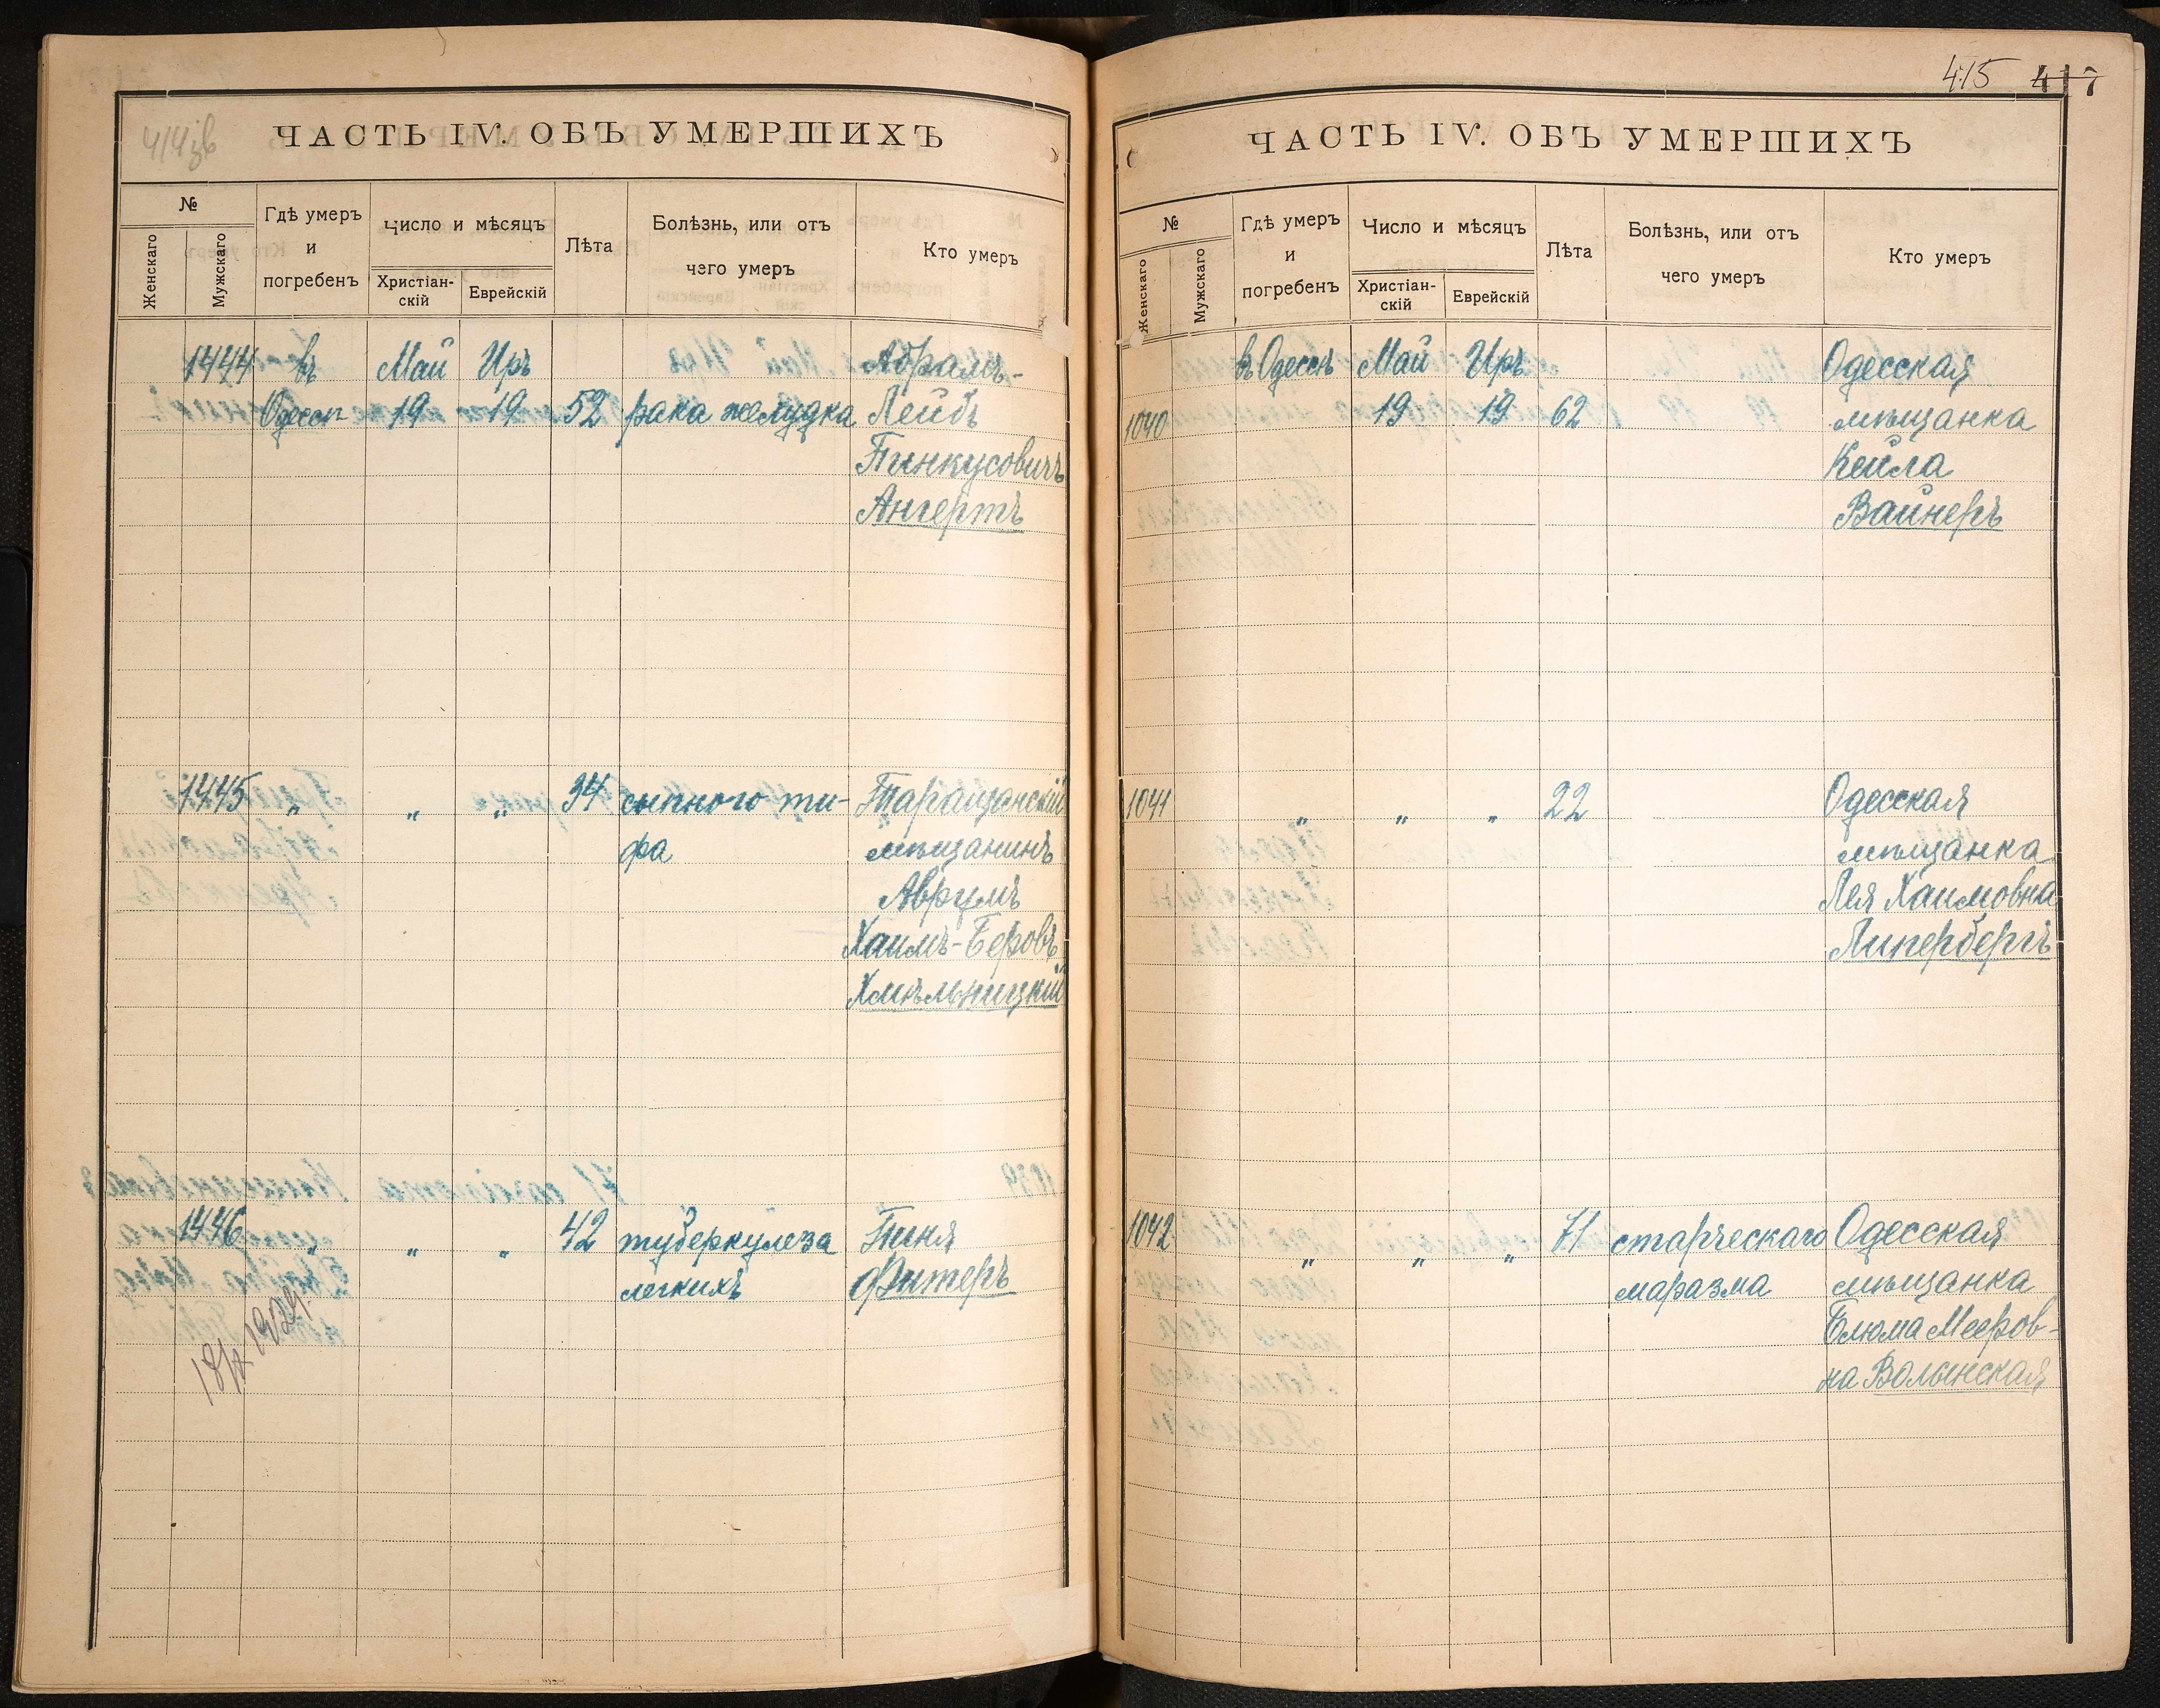 ЧАСТЬ IV. ОБЪ УМЕРШИХЪ
№
Женскаго
Мужскаго
Гдѣ умеръ
и
погребенъ
Число и мѣсяцъ
Христіан-
скій
Еврейскій
Лѣта
Болѣзнь, или отъ
чего умеръ
Кто умеръ
1444 въ Май Иръ Абрамъ-
Одессѣ 19 19 52 рака желудка Лейбъ
Пинкусовичъ
Ангертъ
1445 " " " 34 сыпного ти- Таращанскій
фа мѣщанинъ
Аврумъ
Хаимъ-Беровъ
Хмѣльницкій
1446 " " " 42 туберкулеза Пиня
легкихъ Фитеръ
415 417
ЧАСТЬ IV. ОБЪ УМЕРШИХЪ
№
Женскаго
Мужскаго
Гдѣ умеръ
и
погребенъ
Число и мѣсяцъ
Христіан-
скій
Еврейскій
Лѣта
Болѣзнь, или отъ
чего умеръ
Кто умеръ
въ Одессѣ Май Иръ Одесская
1040 19 19 62 мѣщанка
Кейла
Вайнеръ
1041 " " " 22 Одесская
мѣщанка
Лея Хаимовна
Липербергъ
1042 " " " 71 старческаго Одесская
маразма мѣщанка
Блюма Мееров-
на Волынская